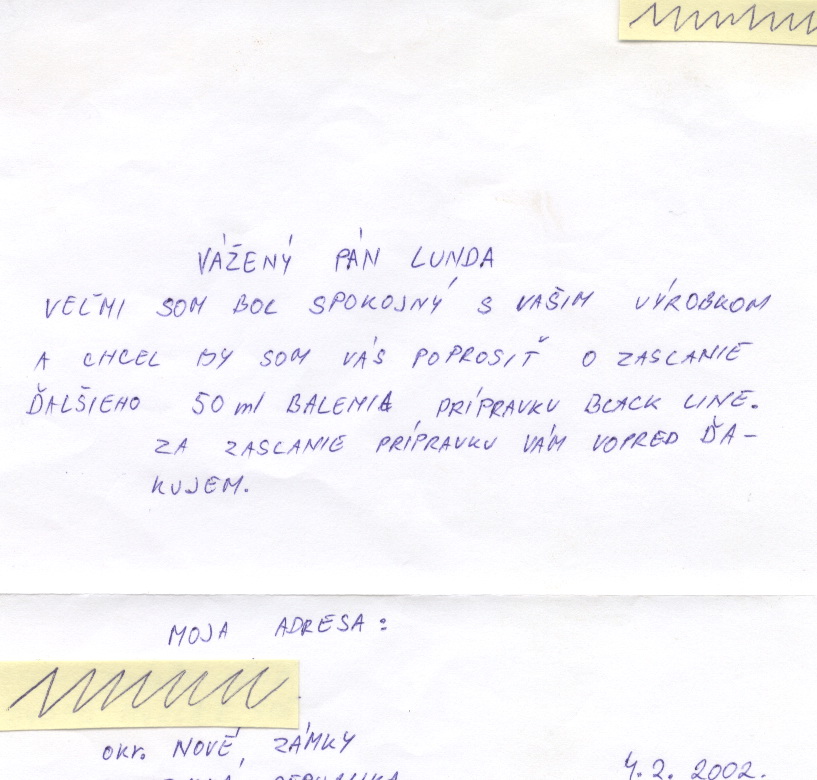 VÁŽENÝ PÁN LUNDA
VEĽMI SOM BOL SPOKOJNÝ S VAŠIM VÝROBKOM
A CHCEL BY SOM VÁS POPROSIŤ O ZASLANIE
ĎALŠIEHO 50 ml BALENIA PRÍPRAVKU BLACK LINE.
ZA ZASLANIE PRÍPRAVKU VÁM VOPRED ĎA-
KUJEM.
MOJA ADRESA:
okr. NOVÉ ZÁMKY
4.2. 2002.